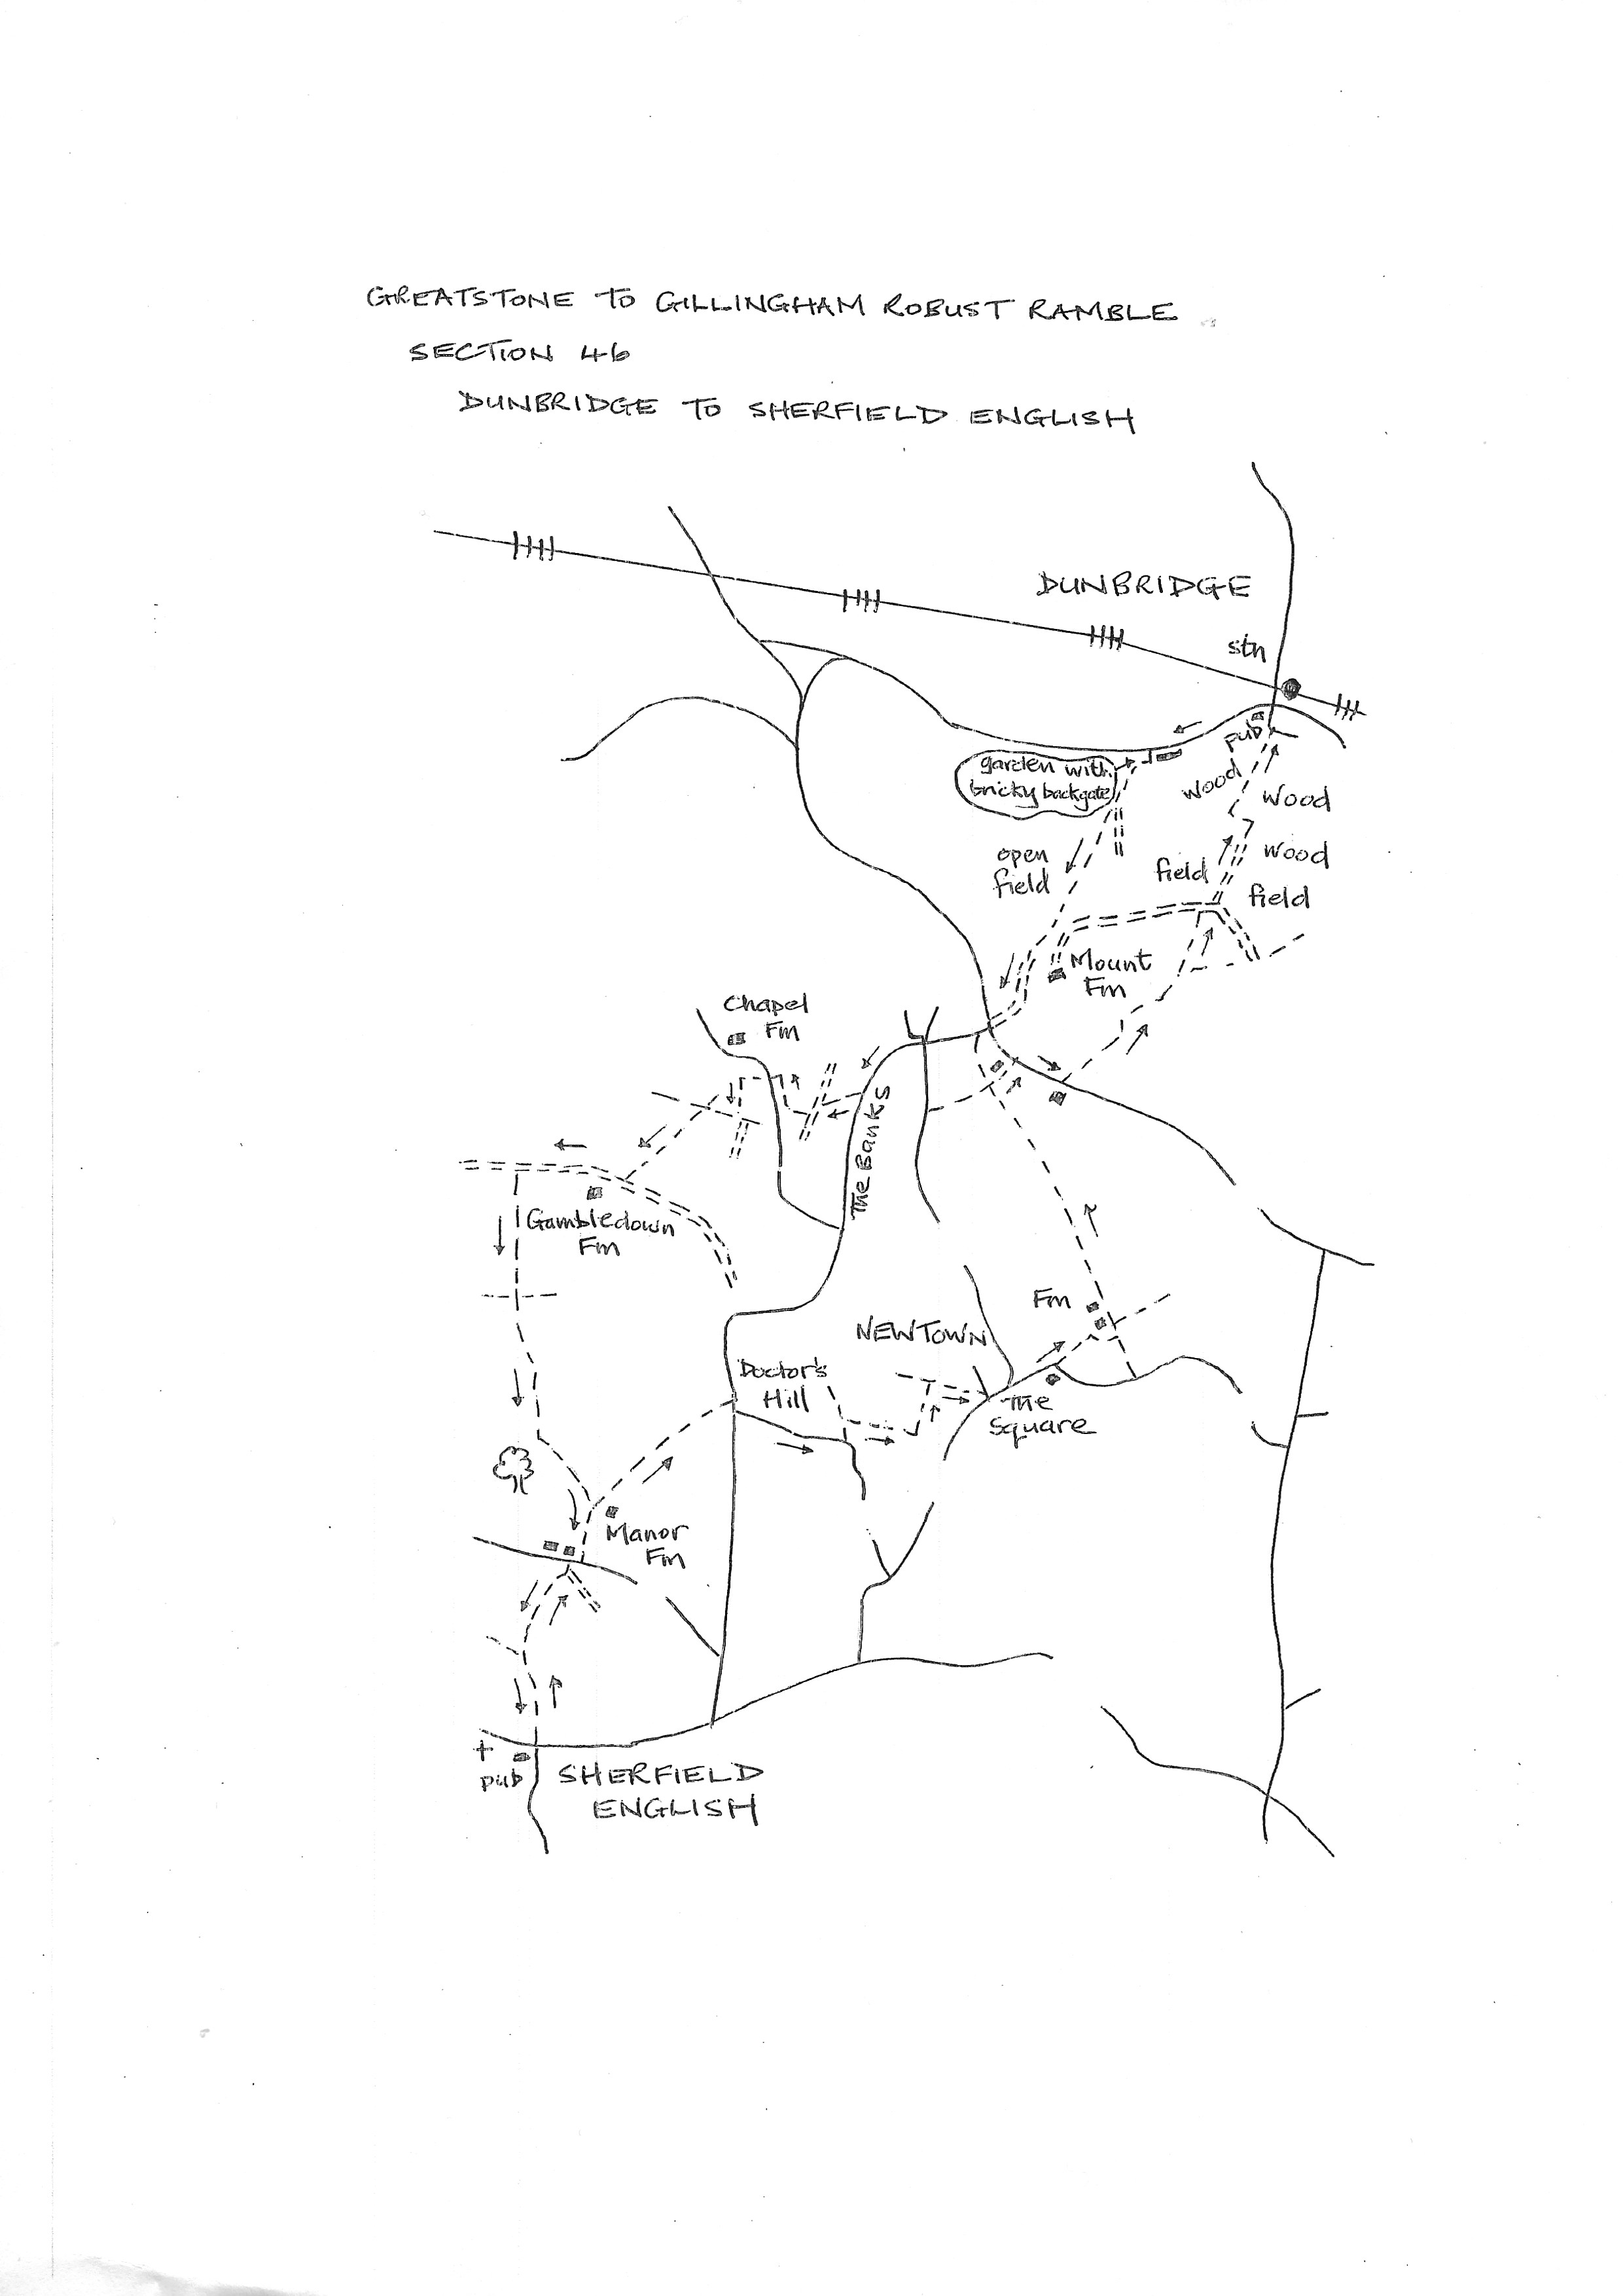 GREATSTONE TO GILLINGHAM ROBUST RAMBLE
SECTION 46
DUNBRIDGE TO SHERFIELD ENGLISH
DUNBRIDGE
stn
pub
garden with
bricky backgate
wood
wood
open
field
field
wood
field
Mount
Fm
Chapel
Fm
The Banks
Gambledown
Fm
Fm
NEWTOWN
Doctor's
Hill
The
Square
Manor
Fm
pub
SHERFIELD
ENGLISH